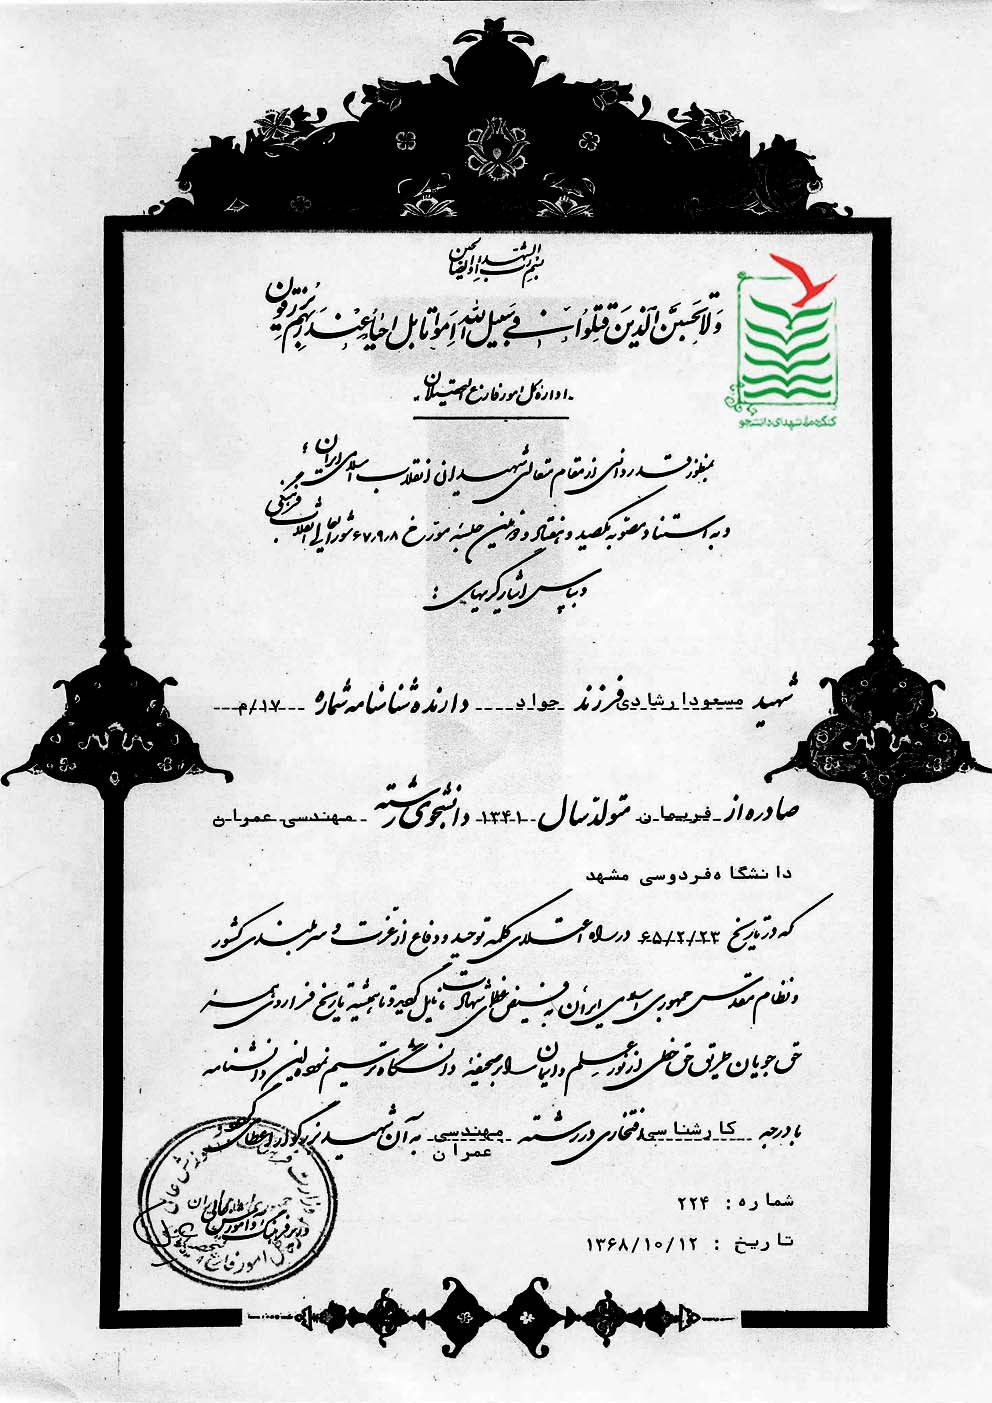 بسم رب الشهداء والصالحین
وَلا تَحسَبَنَّ الَّذینَ قُتِلُوا فی سَبیلِ اللهِ اَمواتا بَل اَحیاءٌ عِندَ رَبِّهِم یُرزَقُون
اداره کل امور فارغ التحصیلان
کنگره ملی شهدای دانشجو
بمنظور قدردانی از مقام متعالی شهیدان انقلاب اسلامی ایران،
و به استناد مصوبه یکصد و هفتاد و دومین جلسه مورخ ۶۷/۹/۸ شورایعالی انقلاب فرهنگی
و بپاس ایثارگریهای :
شهید مسعود ارشادی فرزند جواد دارنده شناسنامه شماره ۱۷/م
صادره از فریمان متولد سال ۱۳۴۱ دانشجوی رشته مهندسی عمران
دانشگاه فردوسی مشهد
که در تاریخ ۶۵/۲/۲۳ در راه اعتلای کلمه توحید و دفاع از عزت و سربلندی کشور
و نظام مقدس جمهوری اسلامی ایران به فیض عظمای شهادت نایل گردید و تا همیشه تاریخ فراروی همه
حق جویان طریق حق خطی از نور علم و ایمان بر صحیفه دانشگاه ترسیم نمود این دانشنامه
با درجه کارشناسی افتخاری در رشته مهندسی عمران به آن شهید بزرگوار اعطا می گردد
شماره : ۲۲۴
تاریخ : ۱۳۶۸/۱۰/۱۲